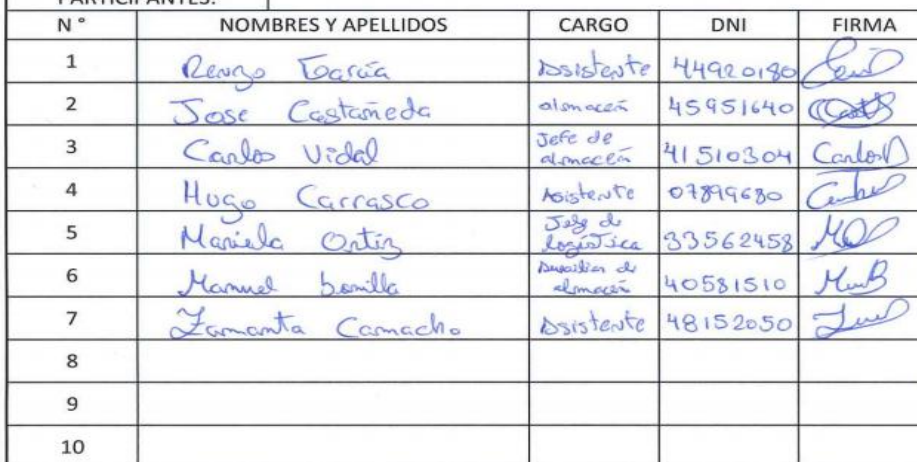 PARTICIPANTES:
N° NOMBRES Y APELLIDOS CARGO DNI FIRMA
1 Renzo García Asistente 44920180
2 Jose Castañeda almacén 45951640
3 Carlos Vidal Jefe de almacén 41510304 CarlosV
4 Hugo Carrasco Asistente 07899680
5 Mariela Ortiz Jefe de logística 33562458
6 Manuel bonilla Auxiliar de almacén 40581510
7 Zamanta Camacho Asistente 48152050
8
9
10